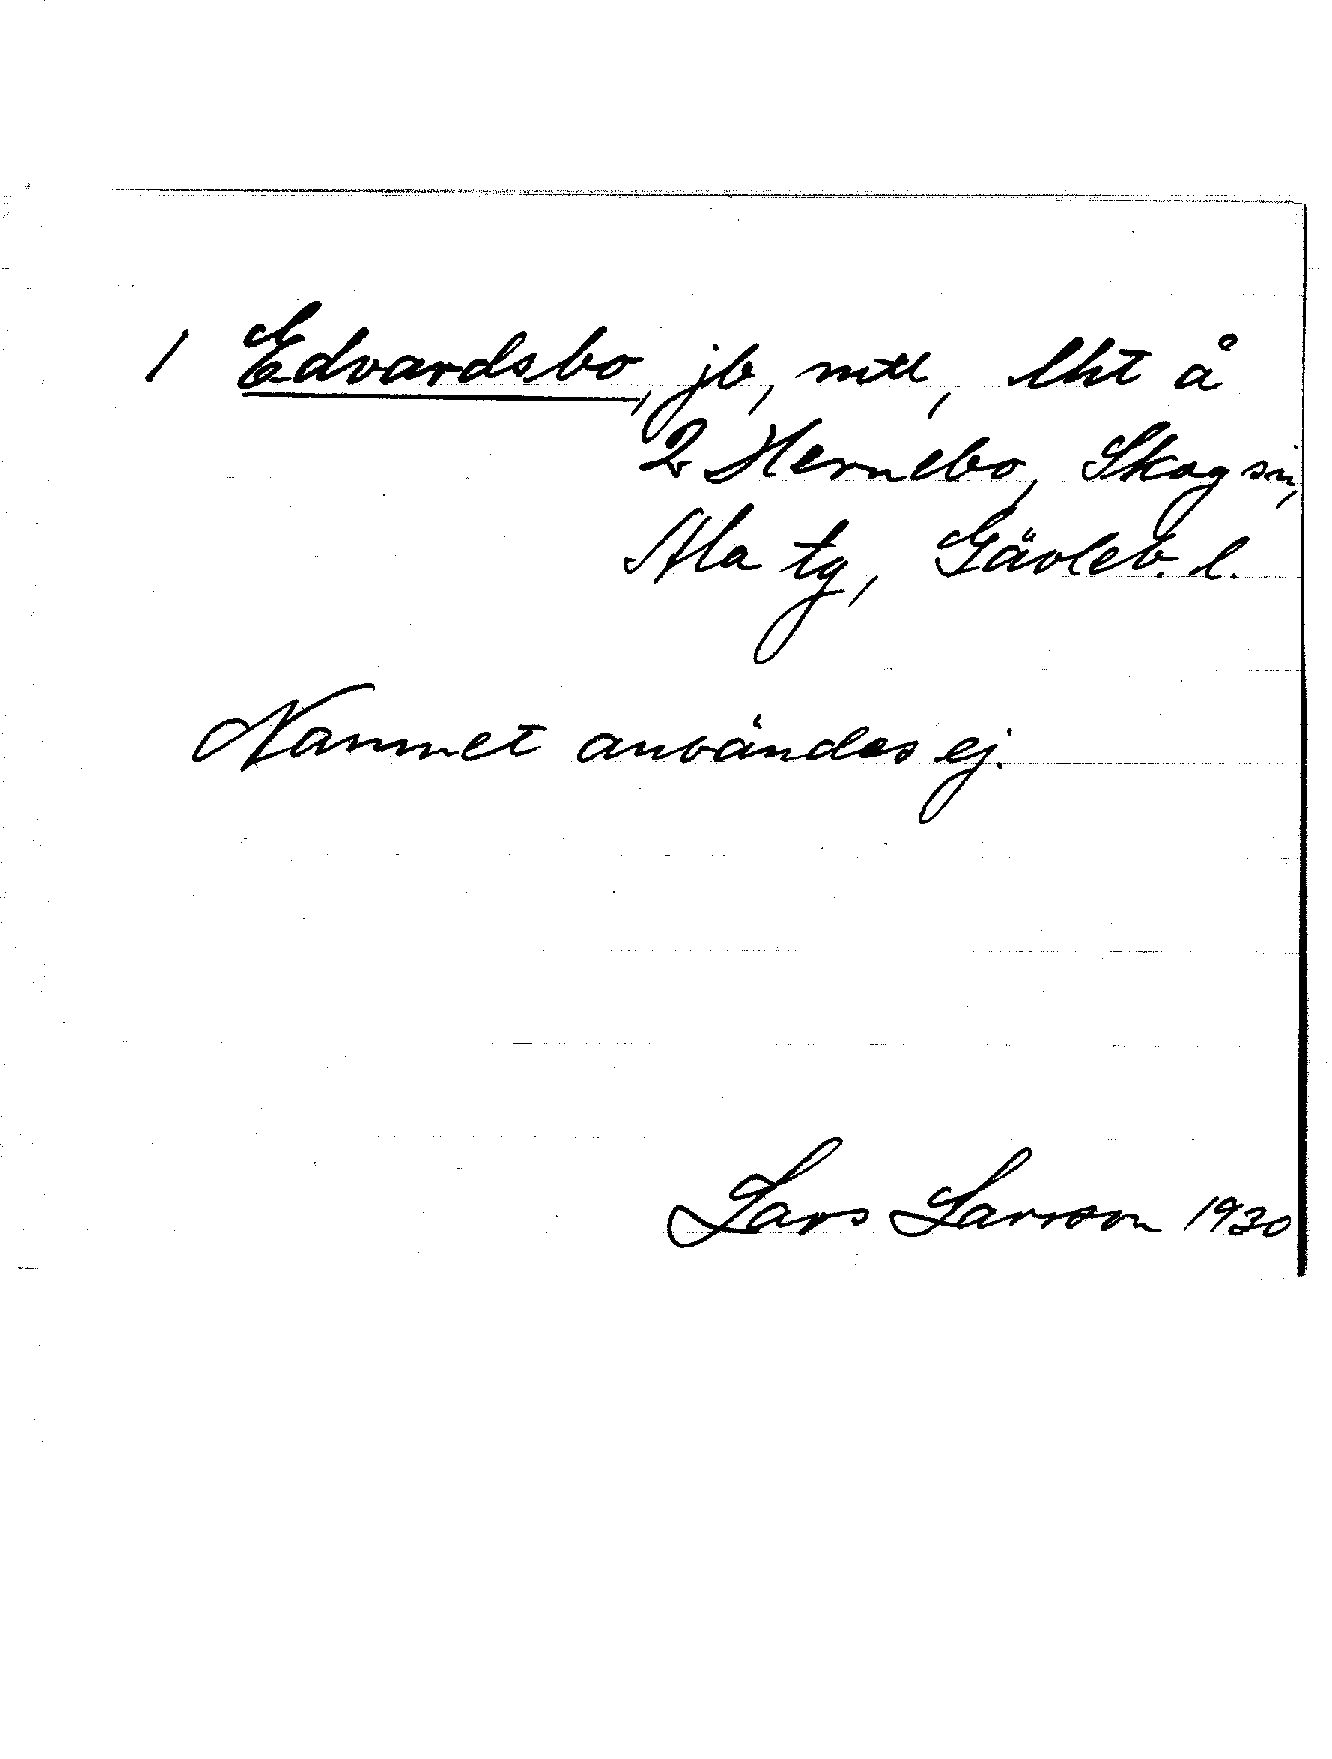 1 Edvardsbo, jb, mtl, lht å
2 Hernebo, Skog sn,
Ala tg, Gävleb. l.
Namnet användes ej.
Lars Larsson 1930